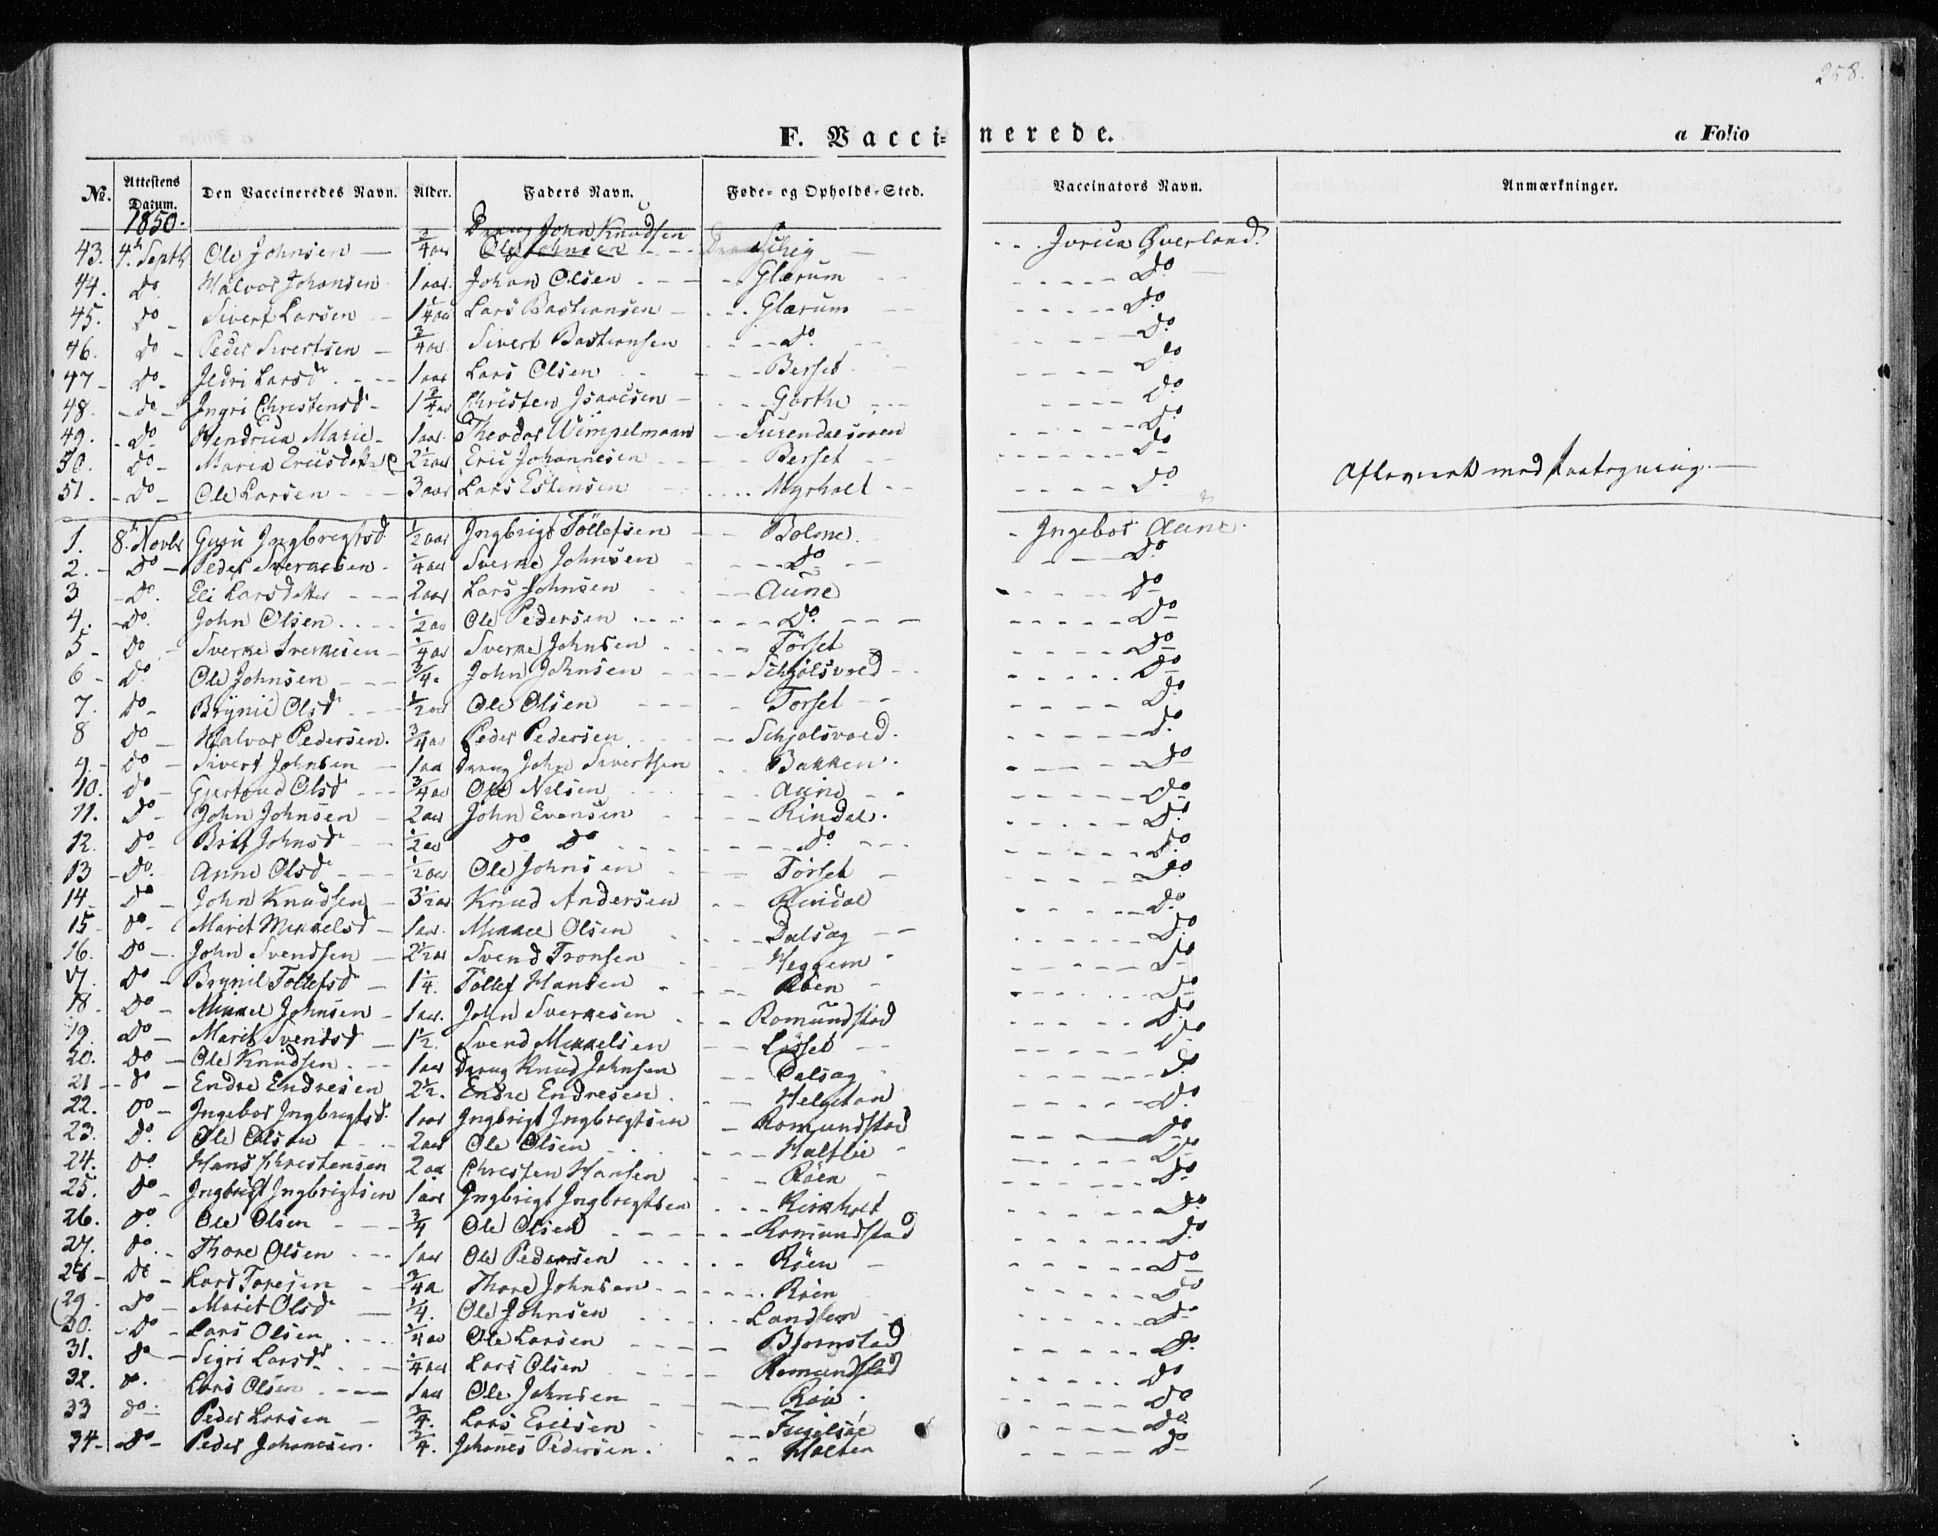 258.
F. Vaccinerede. a Folio
No. Attestens Datum. Den Vaccineredes Navn. Alder. Faders Navn. Føde- og Opholds-Sted. Vaccinators Navn. Anmærkninger.
1850.
Dreng John Knudsen
43. 4. Septb Ole Johnsen 3/4 aar Ole Johnsen Overland.
44. Do Halvor Johansen 1 aar Johan Olsen Glærum Do
45. Do Sivert Larsen 1 1/4 aar Lars Bastiansen Glærum Do
46. Do Peder Sivertsen 3/4 aar Sivert Bastiansen Do Do
47 Do Ildri Larsd 1 aar Lars Olsen Berset Do
48. do Ingri Christensd 1 3/4 aar Christen Isaacsen Garthe Do
49. Do Hendrica Marie 1 aar Theodor Wimpelmann Surendalsøren Do
50. Do Maria Ericsdatter 2 1/2 aar Eric Johannesen Berset Do
51. Do Ole Larsen 3 aar Lars Estensen Myrholt Do
1. 8. Novbr Guru Ingbregtsd 1/2 aar Ingbrigt Tøllefsen Bolme Ingebor Aune
2. Do Peder Sverkesen 1/4 aar Sverke Johnsen Do Do
3 Do Eli Larsdatter 2 aar Lars Johnsen Aune Do
4. Do John Olsen 1/2 aar Ole Pedersen Do Do
5 Do Sverke Sverkesen 1/4 aar Sverke Johnsen Torset Do
6 Do Ole Johnsen 3/4 John Johnsen Schjølsvold Do
7. Do Brynil Olsd 1/2 aar Ole Olsen Torset Do
8 Do Halvor Pedersen 3/4 aar Peder Pedersen Schjølsvold Do
9 Do Sivert Johnsen 1 aar Dreng John Sivertsen Bakken Do
10. do Gjertrud Olsd 3/4 aar Ole Nilsen Aune Do
11. Do John Johnsen 2 aar John Evensen Rindal Do
12. Do Brit Johnsd 1/2 aar Do Do Do Do
13 Do Anne Olsd 1/2 aar Ole Johnsen Torset Do
14 Do John Knudsen 3 1/2 aar Knud Andersen Rindal Do
15 Do Marit Mikkelsd 1 aar Mikkel Olsen Dalsag Do
16. Do John Svendsen 2 1/2 aar Svend Tronsen Heggem Do
17. Do Brynil Tøllefsd 1 1/4 Tøllef Hansen Røen Do
18. Do Mikkel Johnsen 1 aar John Sverkesen Romundstad Do
19. Do Marit Svendsd 1 1/2 Svend Mikkelsen Løset Do
20. Do Ole Knudsen 1 aar Dreng Knud Johnsen Dalsag Do
21 Do Endre Endresen 2 1/2 Endre Endresen Helgetun Do
22. Do Ingebor Ingbregtsd 1 aar Ingbrigt Ingbregtsen Romundstad Do
23. Do Ole Olsen 2 aar Ole Olsen Haltlie Do
24. Do Hans Christensen 2 aar Christen Hansen Røen Do
25. Do Ingbrigt Ingbrigtsen 1 aar Ingbrigt Ingbregtsen Kirkholt Do
26. Do Ole Olsen 3/4 Ole Olsen Romundstad Do
27. Do Thore Olsen 1 aar Ole Pedersen Røen Do
28 Do Lars Toresen 3/4 a Thore Johnsen Røen Do
29. Do Marit Olsd 1/4 Ole Johnsen Landsem Do
30. Do Lars Olsen 1/4 aar Ole Larsen Bjørnstad Do
31. Do Sigri Larsd 1/4 aar Lars Olsen Romundstad Do
32. Do Lars Olsen 1 aar Ole Johnsen Do
33 do Peder Larsen 3/4 Lars Ericsen Fugelsøe Do
34 Do Peder Johanesen 3/4 Johanes Pedersen Holten Do